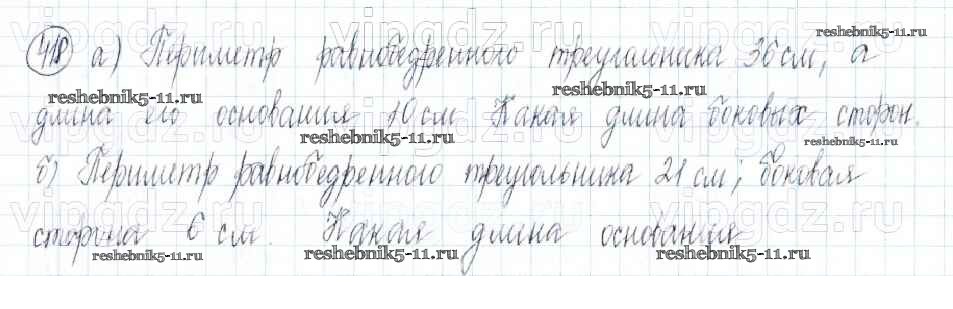 vipgdz.ru vipgdz.ru vipgdz.ru
reshebnik5-11.ru
418 а) Периметр равнобедренного треугольника 36 см, а
reshebnik5-11.ru
длина его основания 10 см. Какая длина боковых сторон.
reshebnik5-11.ru reshebnik5-11.ru
б) Периметр равнобедренного треугольника 21 см; боковая
vipgdz.ru vipgdz.ru vipgdz.ru
сторона 6 см. Какая длина основания
reshebnik5-11.ru reshebnik5-11.ru reshebnik5-11.ru